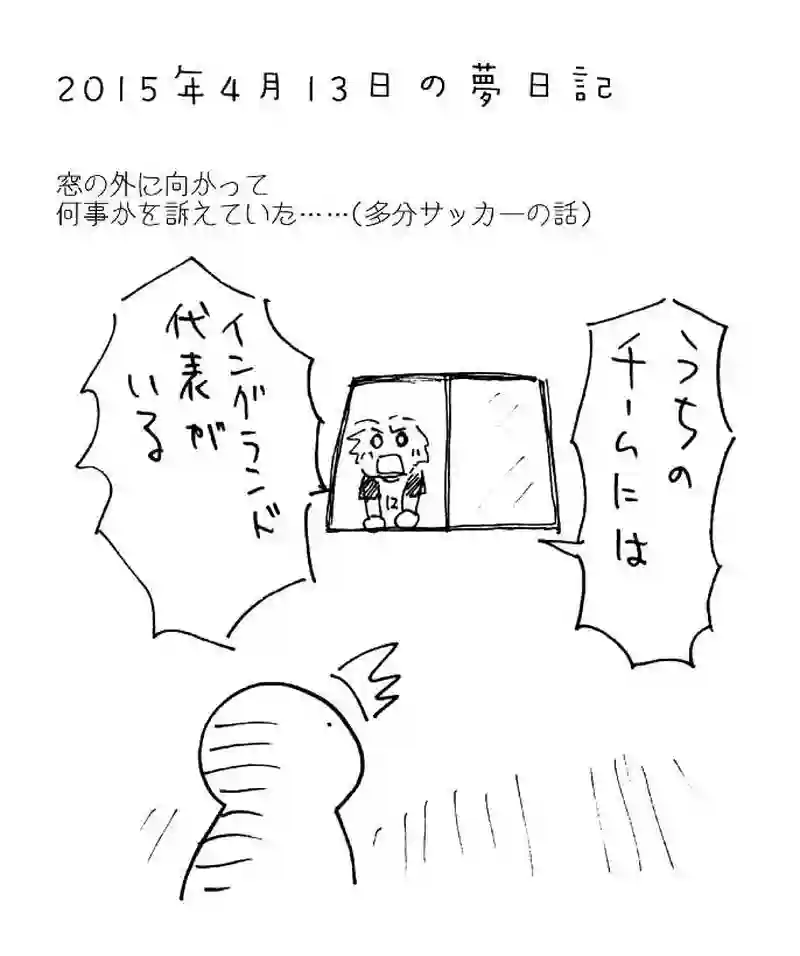 2015年4月13日の夢日記
窓の外に向かって
何事かを訴えていた……(多分サッカーの話)
うちの
チームには
イングランド
代表が
いる
12